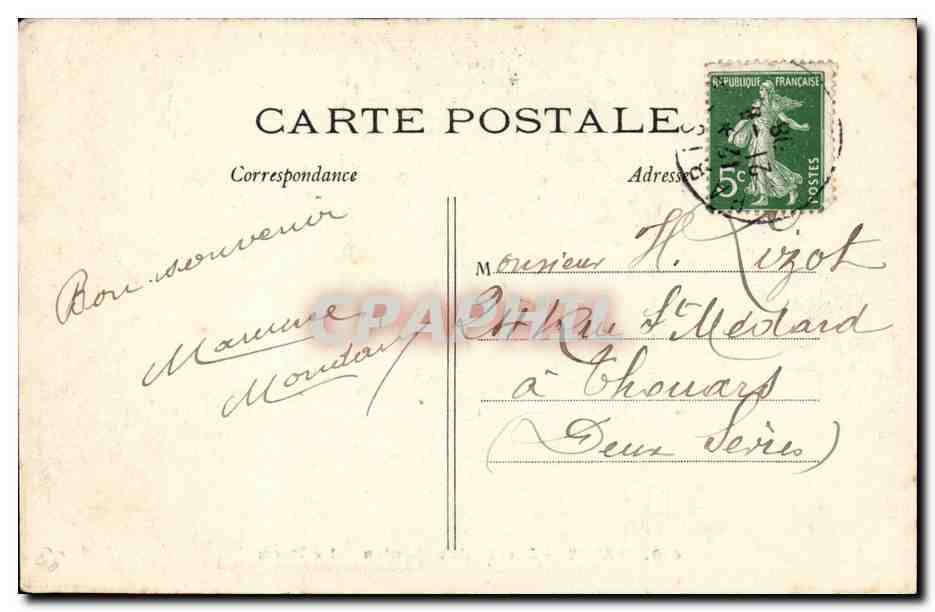 CARTE POSTALE
Correspondance
Adresse
RÉPUBLIQUE FRANÇAISE
5c
POSTES
Bon souvenir
Maurice
Monsieur H. Lizot
Rue St Médard
à Thouars
(Deux Sèvres)
CARTAPHIL